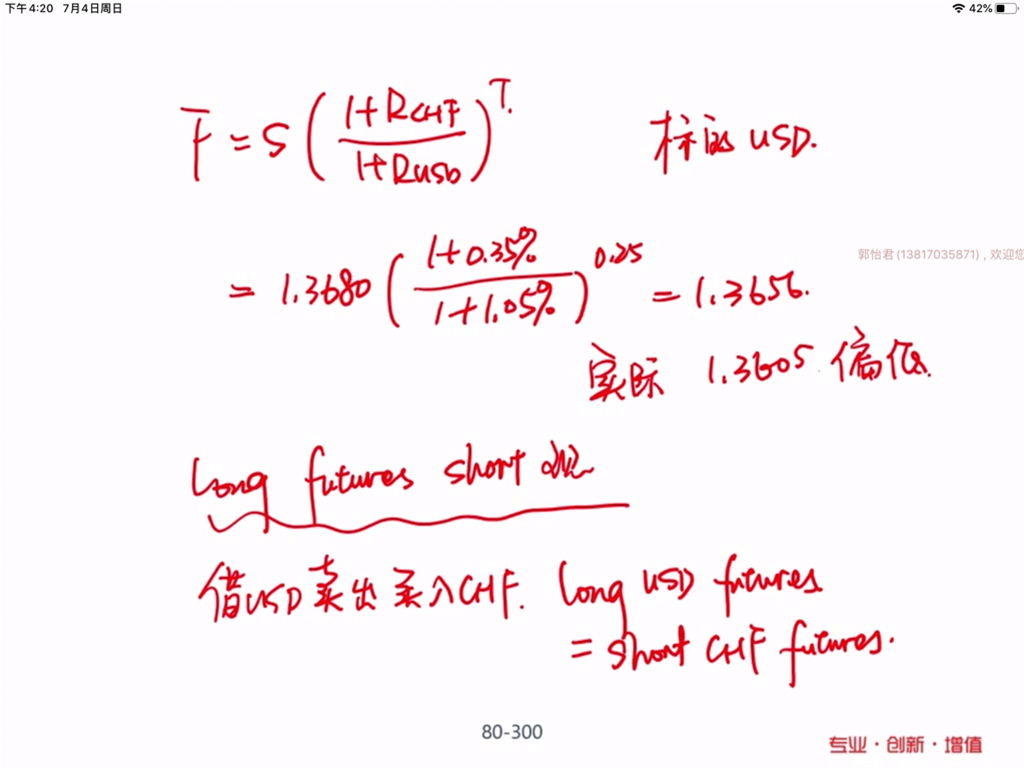 下午4:20 7月4日周日
42%
F = S ( (1+R_CHF) / (1+R_USD) )^T. 标的 USD.
= 1.3680 ( (1+0.35%) / (1+1.05%) )^0.25 = 1.3656.
郭怡君 (13817035871) , 欢迎您
实际 1.3605 偏低.
long futures short 现
借USD 卖出 买入CHF. long USD futures
= short CHF futures.
80-300
专业·创新·增值